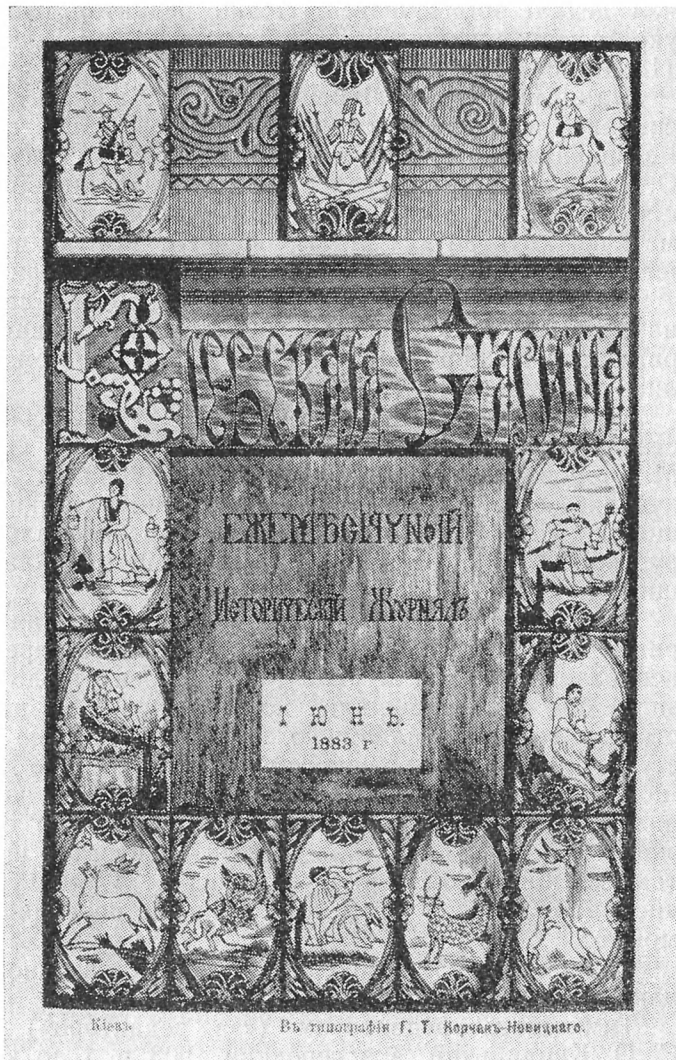 Кіевская Старина
ЕЖЕМѢСЯЧНЫЙ
Историческій Журналъ
ІЮНЬ.
1883 г.
Кіевъ. Въ типографіи Г. Т. Корчакъ-Новицкаго.